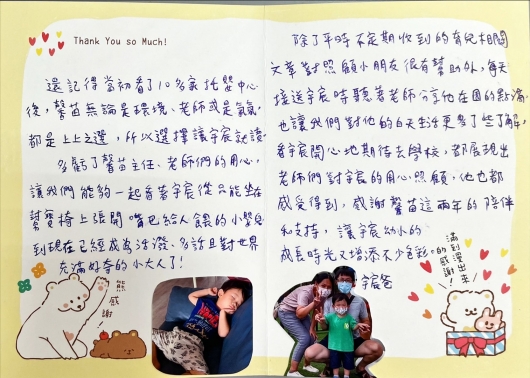 Thank You so Much!
還記得當初看了10多家托嬰中心
後，馨苗無論是環境、老師或是氣氛，
都是上上之選，所以選擇讓宇宸就讀。
多虧了馨苗主任、老師們的用心，
讓我們能夠一起看著宇宸從只能坐在
幫寶椅上張開嘴巴給人餵的小嬰兒
到現在已經成為活潑、多話且對世界
充滿好奇的小大人了!
熊
感
謝
!
除了平時不定期收到的育兒相關
文章對照顧小朋友很有幫助外，每天
接送宇宸時聽著老師分享他在園的點滴，
也讓我們對他的白天生活更多了些了解，
看宇宸開心地期待去學校，都展現出
老師們對宇宸的用心照顧，他也都
感受得到，感謝馨苗這兩年的陪伴
和支持，讓宇宸幼小的
成長時光又增添不少色彩。
宇宸爸
滿到溢出來
的感謝!